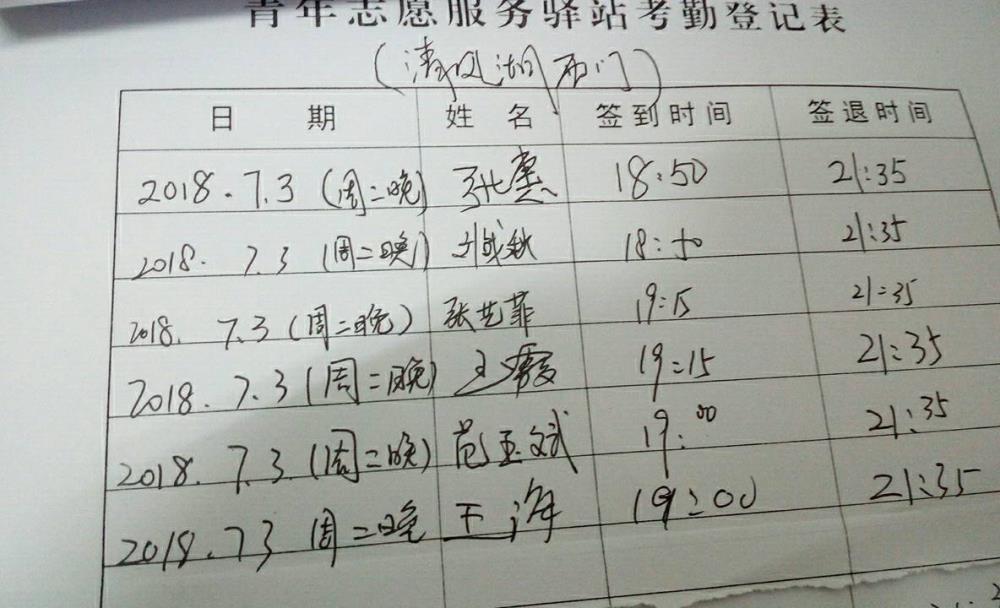 青年志愿服务驿站考勤登记表
(清风湖西门)
日 期 姓 名 签到时间 签退时间
2018.7.3 (周二晚) 18:50 21:35
2018. 7.3 (周二晚) 18:50 21:35
2018. 7.3 (周二晚) 张艺菲 19:15 21:35
2018. 7.3 (周二晚) 王霞 19:15 21:35
2018. 7.3. (周二晚) 范玉斌 19:00 21:35
2018.73 周二晚 王海 19:00 21:35